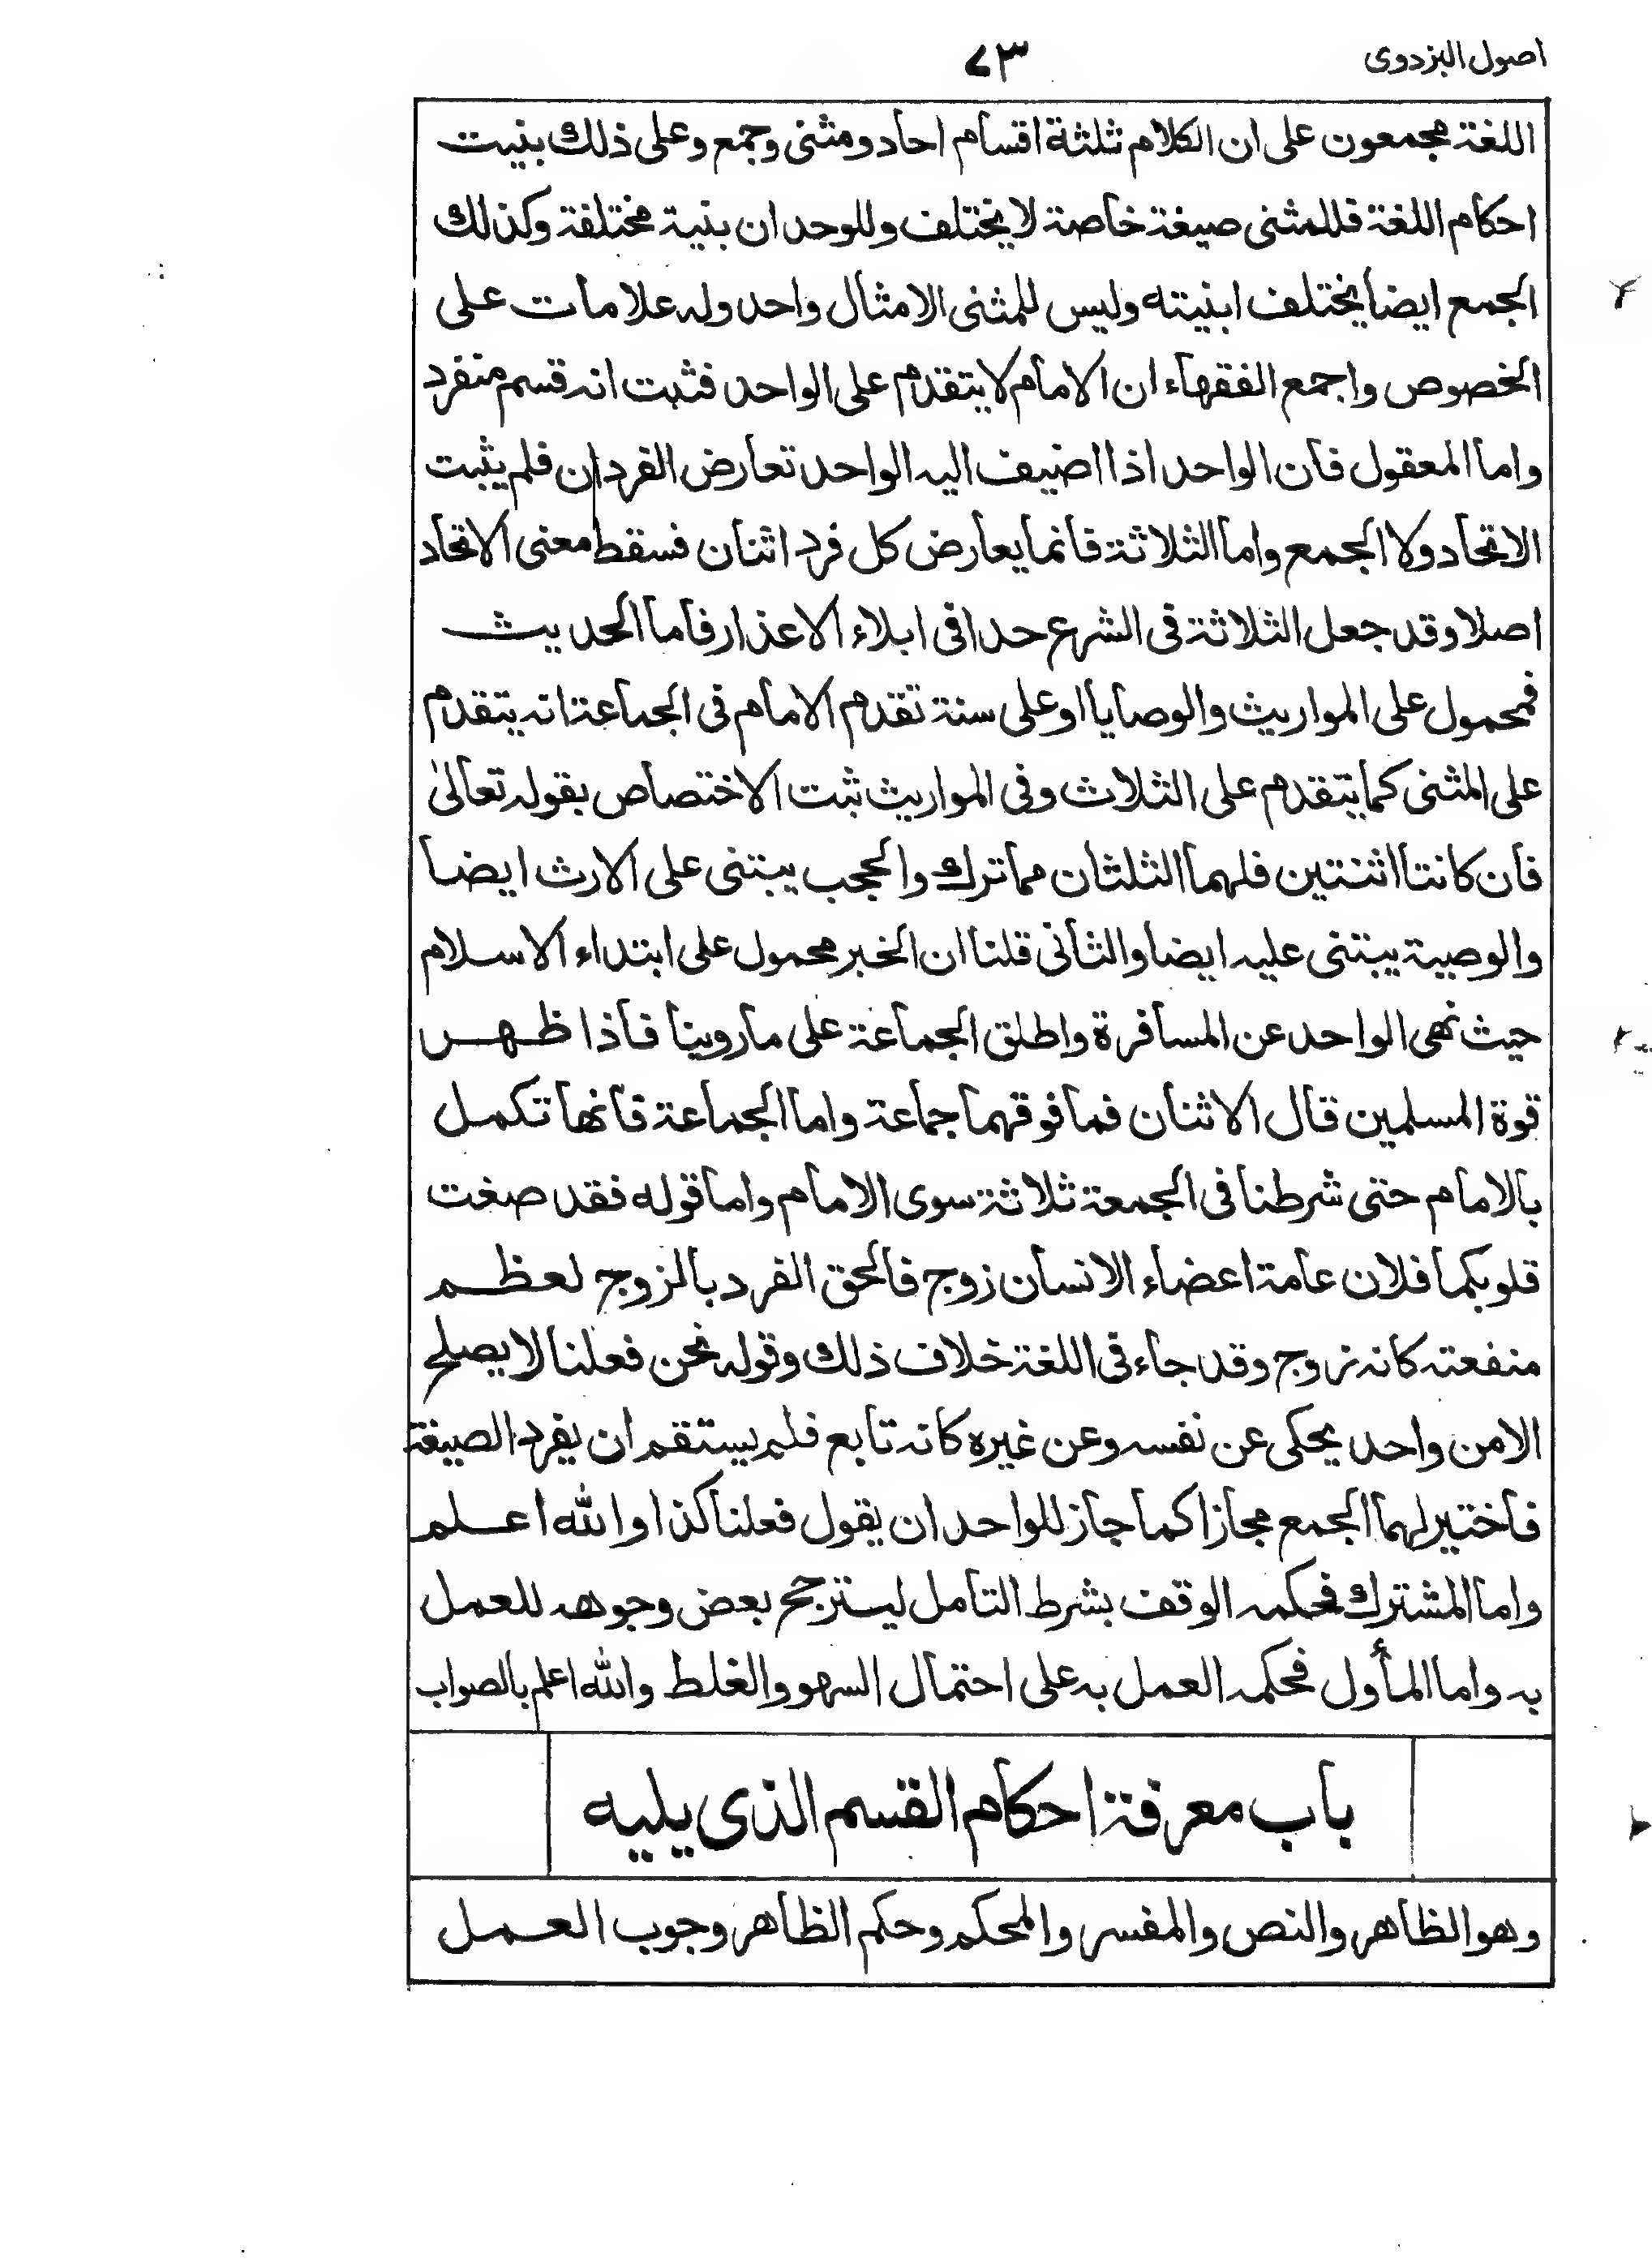 اصول البزدوى
٧٣
اللغة مجمعون على ان الكلام ثلثة اقسام احاد ومثنى وجمع وعلى ذلك بنيت
احكام اللغة فللمثنى صيغة خاصة لا يختلف وللوحدان بنية مختلفة وكذلك
الجمع ايضا يختلف ابنيته وليس للمثنى الا مثال واحد وله علامات على
الخصوص واجمع الفقهاء ان الامام لا يتقدم على الواحد فثبت انه قسم منفرد
واما المعقول فان الواحد اذا اضيف اليه الواحد تعارض الفردان فلم يثبت
الاتحاد ولا الجمع واما الثلاثة فانما يعارض كل فرد اثنان فسقط معنى الاتحاد
اصلا وقد جعل الثلاثة فى الشرع حدا فى ابلاء الاعذار فاما الحديث
فمحمول على المواريث والوصايا او على سنة تقدم الامام فى الجماعة انه يتقدم
على المثنى كما يتقدم على الثلاث وفى المواريث ثبت الاختصاص بقوله تعالىٰ
فان كانتا اثنتين فلهما الثلثان مما ترك والحجب يبتنى على الارث ايضا
والوصية يبتنى عليه ايضا والثانى قلنا ان الخبر محمول على ابتداء الاسلام
حيث نهى الواحد عن المسافرة واطلق الجماعة على ما روينا فاذا ظهر
قوة المسلمين قال الاثنان فما فوقهما جماعة واما الجماعة فانها تكمل
بالامام حتى شرطنا فى الجمعة ثلاثة سوى الامام واما قوله فقد صغت
قلوبكما فلان عامة اعضاء الانسان زوج فالحق الفرد بالزوج لعظم
منفعته كانه زوج وقد جاء فى اللغة خلاف ذلك وقوله نحن فعلنا لا يصلح
الا من واحد يحكى عن نفسه وعن غيره كانه تابع فلم يستقم ان يفرد الصيغة
فاختير لهما الجمع مجازا كما جاز للواحد ان يقول فعلنا كذا والله اعلم
واما المشترك فحكمه الوقف بشرط التامل ليترجح بعض وجوهه للعمل
به واما المأول فحكمه العمل به على احتمال السهو والغلط والله اعلم بالصواب
باب معرفة احكام القسم الذى يليه
وهو الظاهر والنص والمفسر والمحكم وحكم الظاهر وجوب العمل